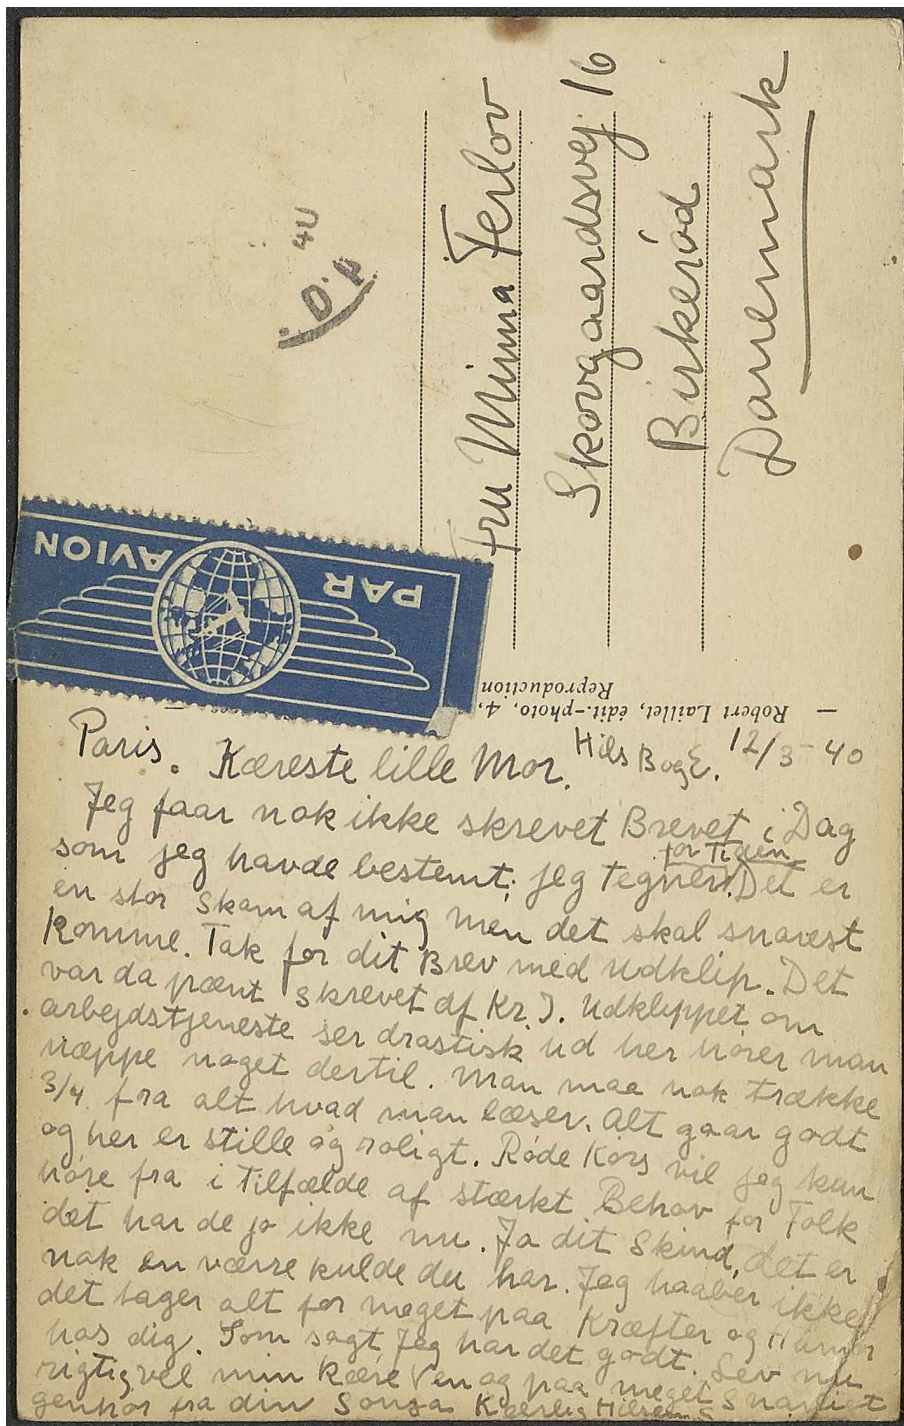 Fru Minna Ferlov
Skovgaardsvej 16
Birkerød
Danemark
40
PAR AVION
— Robert Laillet, édit.-photo, 4,
Reproduction
Paris. Kæreste lille Mor. Hils B og E. 12/3-40
Jeg faar nok ikke skrevet Brevet i Dag
som jeg havde bestemt; jeg tegner for Tiden. Det er
en stor Skam af mig men det skal snarest
komme. Tak for dit Brev med Udklip. Det
var da pænt skrevet af Kr. J. Udklippet om
arbejdstjeneste ser drastisk ud her hører man
næppe noget dertil. Man maa nok trække
3/4 fra alt hvad man læser. Alt gaar godt
og her er stille og roligt. Røde Kors vil jeg kun
høre fra i Tilfælde af stærkt Behov for Folk
det har de jo ikke nu. Ja dit Skind, det er
nok en værre kulde du har. Jeg haaber ikke
det tager alt for meget paa Kræfter og Humør
hos dig. Som sagt jeg har det godt. Lev nu
rigtig vel min kære Ven og paa meget snarligt
genhør fra din Sonja Kærlig Hilsen